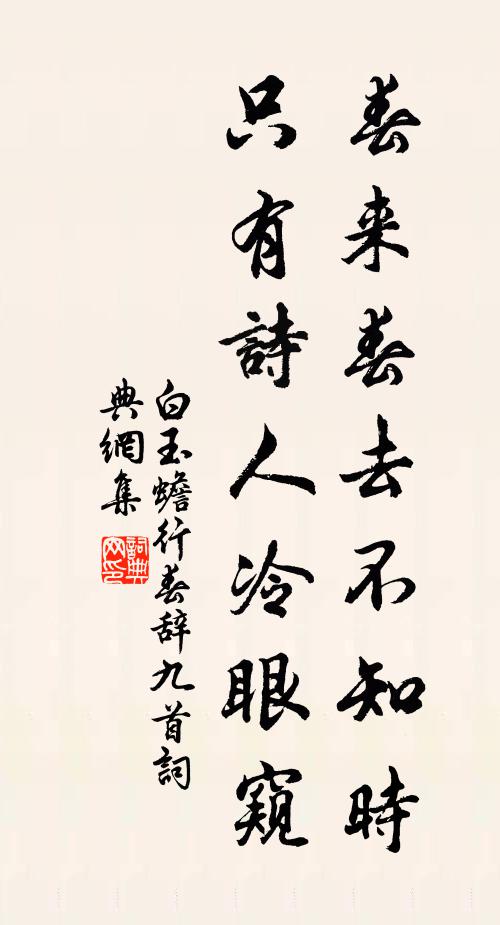 春来春去不知時
只有詩人冷眼窺
白玉蟾行春辞九首詞
典網集
詞典
网印